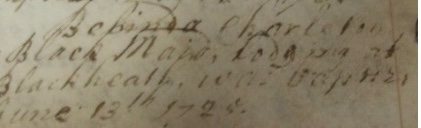 Charleton
Black Maid, Lodging at
Blackheath, was Baptiz,
June 13th 172